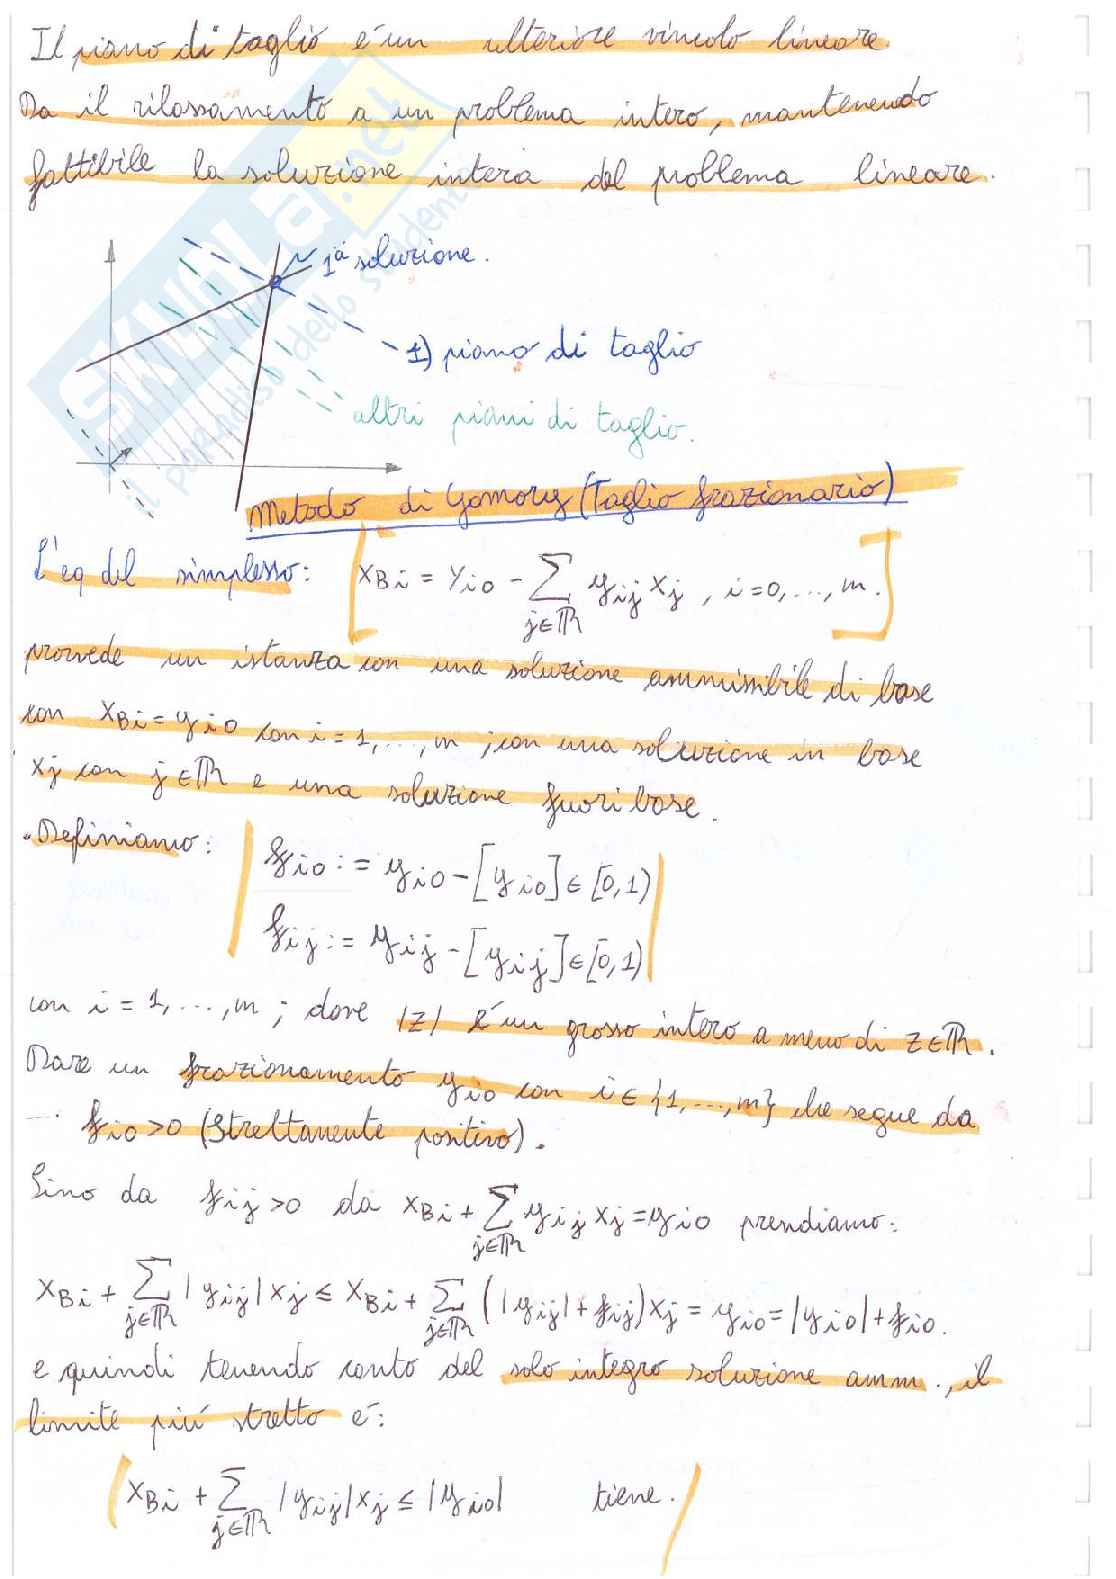 Il piano di taglio é un ulteriore vincolo lineare.
Da il rilassamento a un problema intero, mantenendo
fattibile la soluzione intera del problema lineare.
1ª soluzione.
1) piano di taglio
altri piani di taglio.
Metodo di Gomory (Taglio frazionario)
L'eq del simplesso: [xBi = yi0 - ∑j∈R yij xj, i=0,...,m.]
provvede un istanza con una soluzione ammissibile di base
con xBi = yi0 con i=1,...,m ; con una soluzione in base
xj con j∈R e una soluzione fuori base.
Definiamo:
fi0 := yi0 - [yi0] ∈ [0,1)
fij := yij - [yij] ∈ [0,1)
con i = 1,...,m ; dove |Z| é un grosso intero a meno di Z∈R.
Dare un frazionamento yi0 con i∈{1,...,m} che segue da
fi0 >0 (Strettamente positivo).
Sino da fij >0 da xBi + ∑j∈R yij xj = yi0 prendiamo:
xBi + ∑j∈R |yij| xj ≤ xBi + ∑j∈R (|yij| + fij) xj = yi0 = |yi0| + fi0.
e quindi tenendo conto del solo integro soluzione amm., il
limite piú stretto é:
xBi + ∑j∈R |yij| xj ≤ |yi0| tiene.
SKUOLA.net
il paradiso dello studente